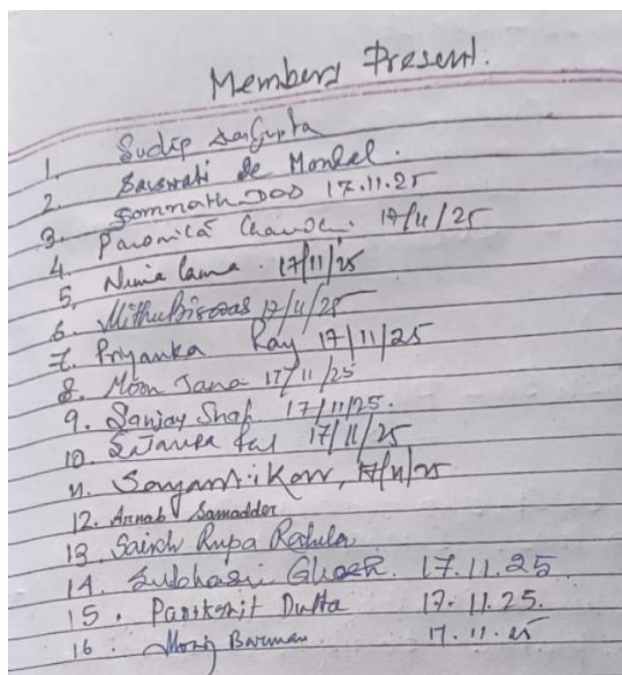 Members Present.
1. Sudip DasGupta
2. Saswati De Mondal.
3. Somnath Das 17.11.25
4. Paromita 17/11/25
5. Nima Lama. 17/11/25
6. Mithu Biswas 17/11/25
7. Priyanka Ray 17/11/25
8. Moon Jana 17/11/25
9. Sanjay Shah 17/11/25.
10. Pal 17/11/25
11. Sayanti Kar, 17/11/25
12. Arnab Samadder
13. Rupa
14. Subhasri Ghosh. 17.11.25
15. Dutta 17.11.25.
16. Barman 17.11.25